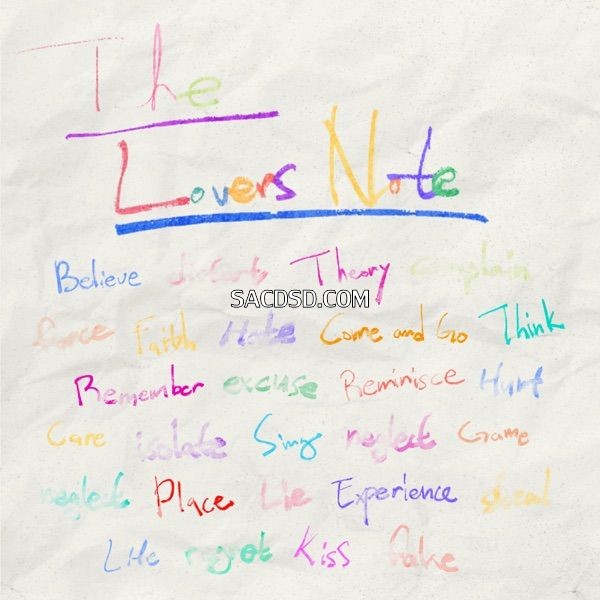 The
Lovers Note
Believe distort Theory complain
SACDSD.COM
force Faith Hate Come and Go Think
Remember excuse Reminisce Hurt
Care isolate Sing neglect Game
neglect Place Lie Experience
Life regret Kiss fake